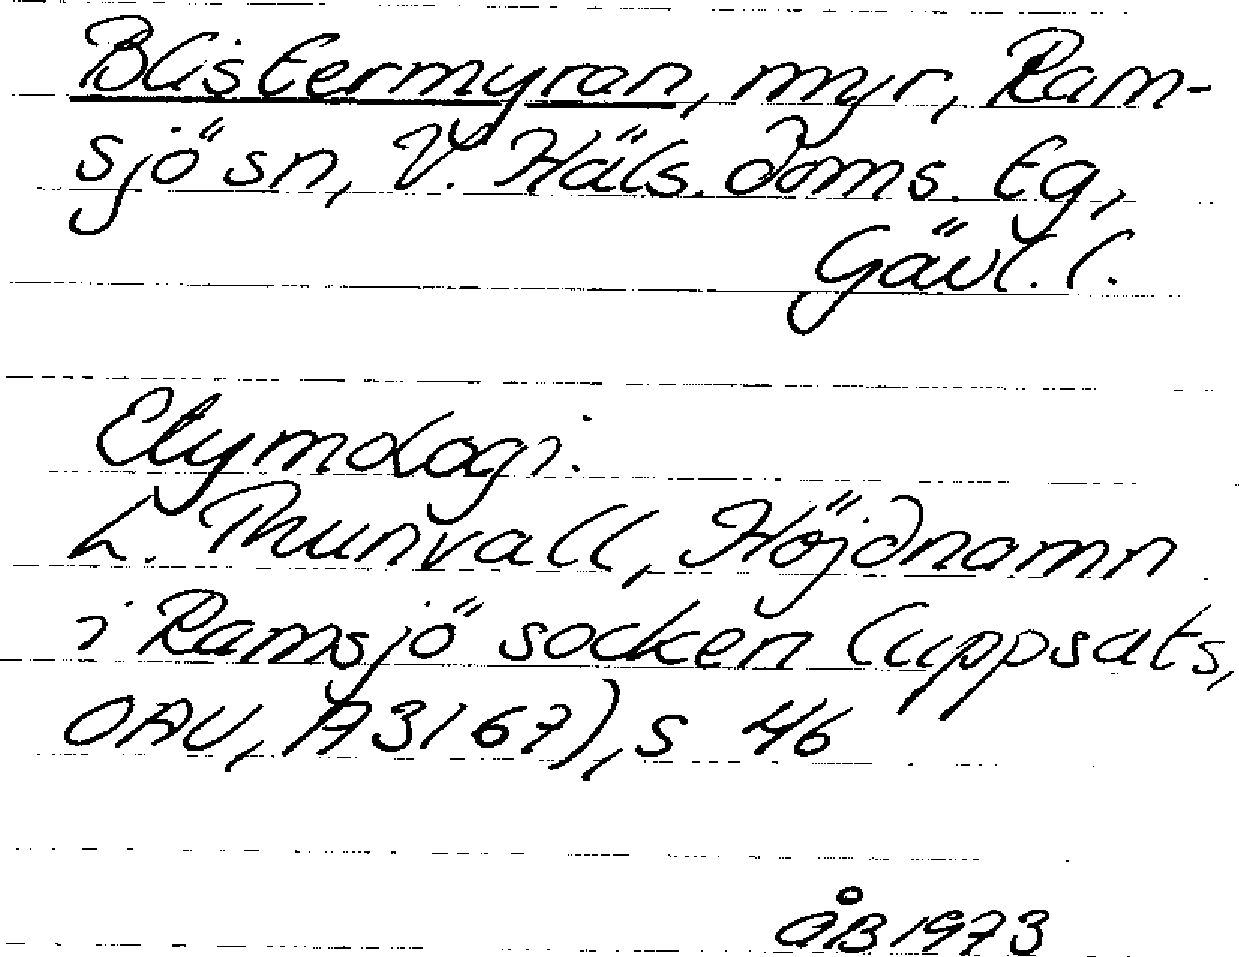 Blistermyran, myr, Ram-
sjö sn, V. Häls. doms. tg,
Gävl. l.
Etymologi.
L. Thunvall, Höjdnamn
i Ramsjö socken (uppsats,
OAU, A3167), s 46
ÅB 1973